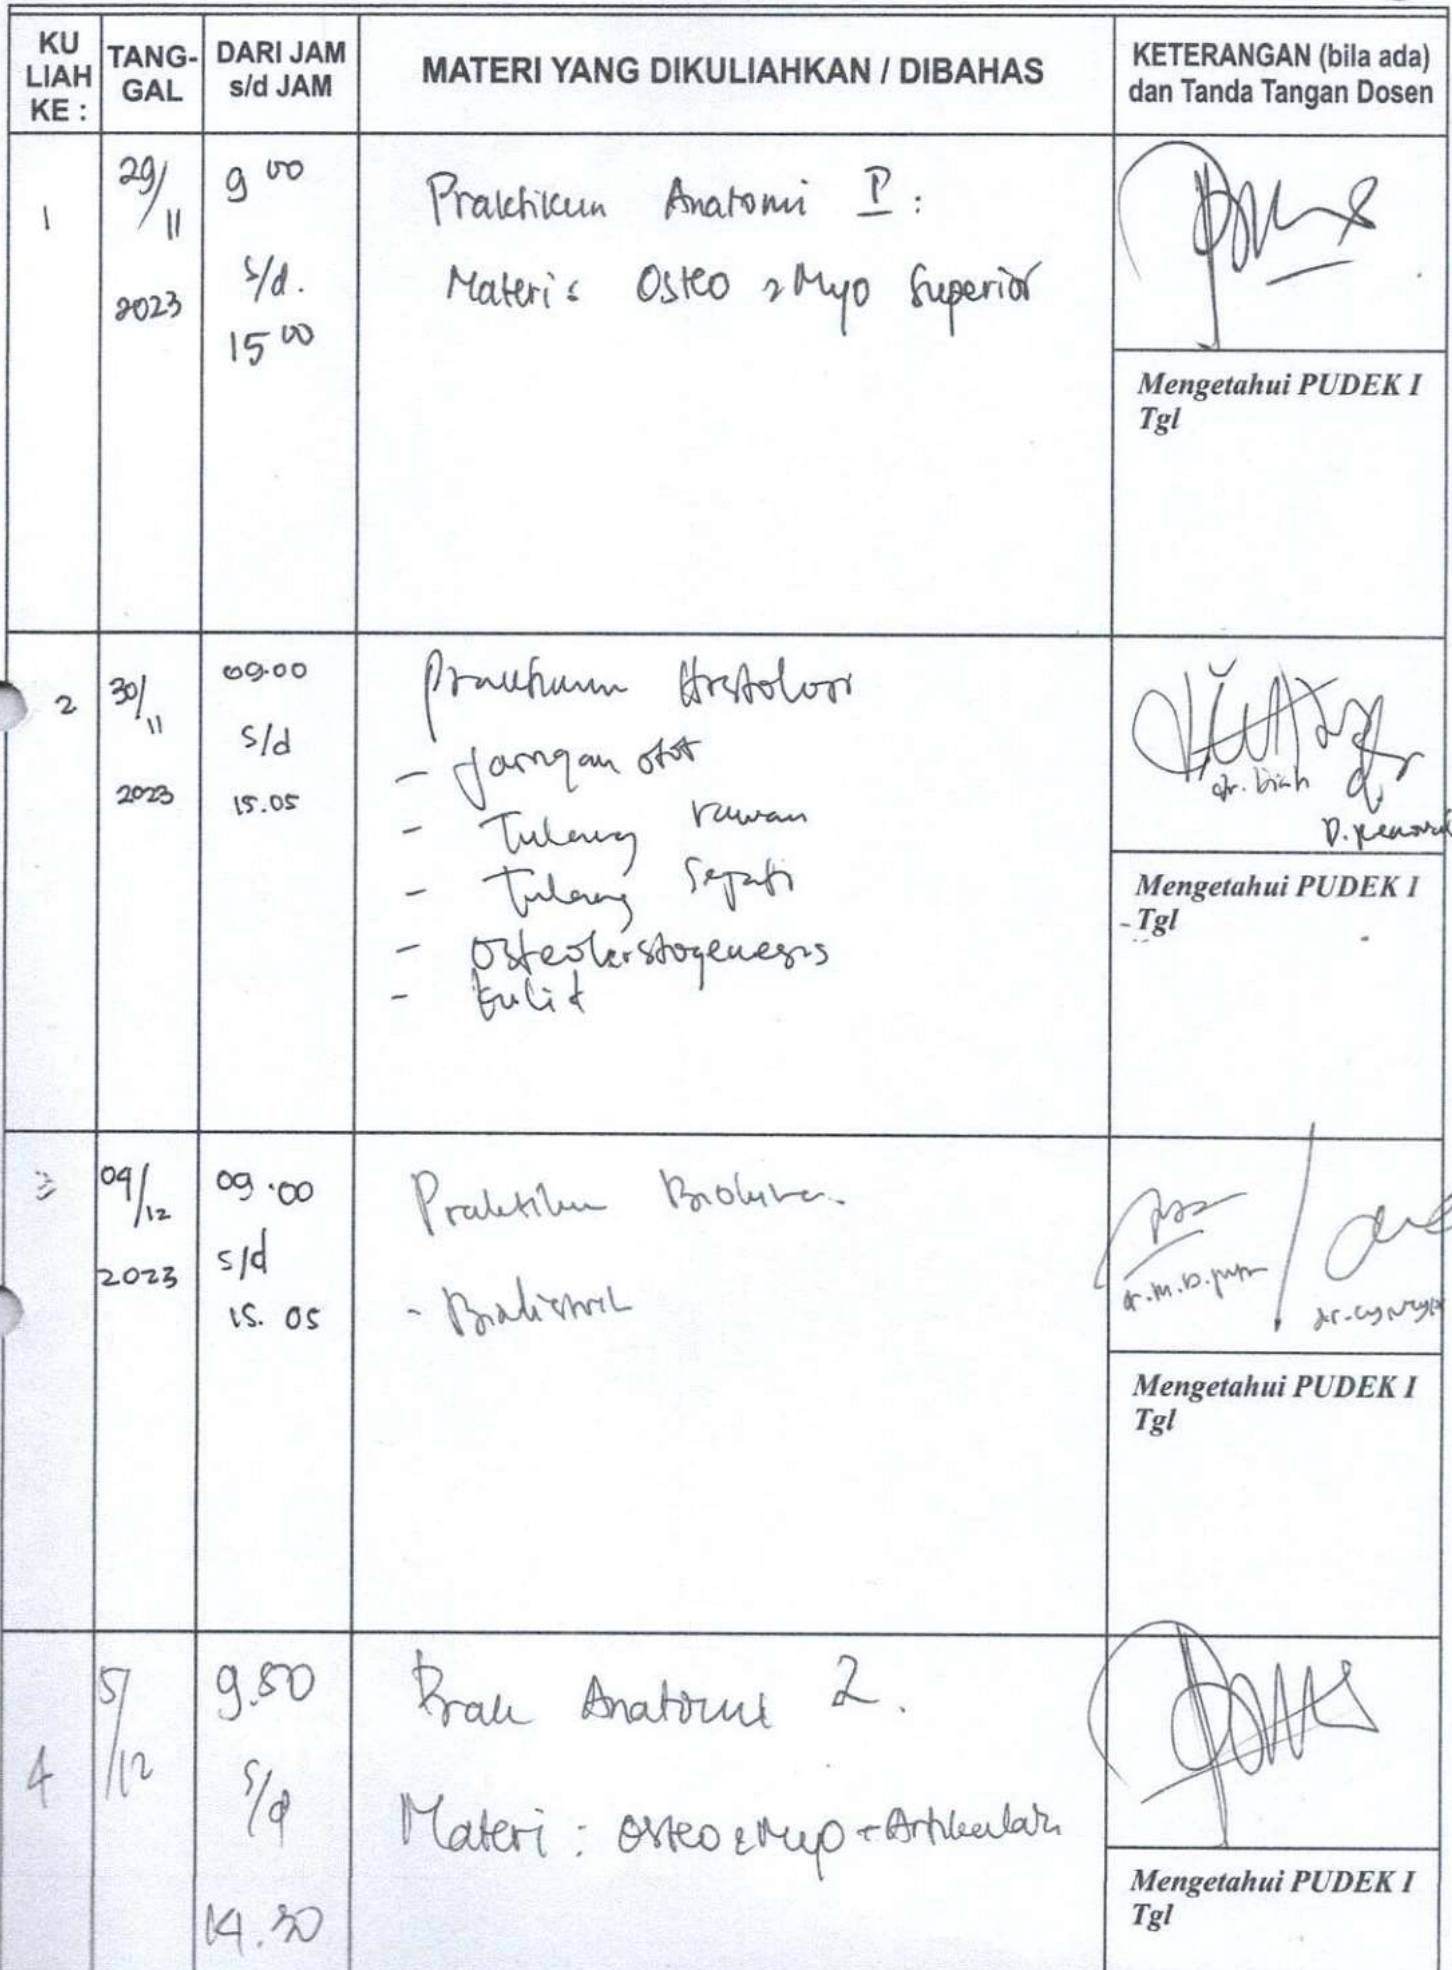 KU LIAH KE :
TANG-GAL
DARI JAM s/d JAM
MATERI YANG DIKULIAHKAN / DIBAHAS
KETERANGAN (bila ada) dan Tanda Tangan Dosen
1
29/11
2023
9 00
s/d.
15 00
Praktikum Anatomi I :
Materi : Osteo & Myo Superior
Mengetahui PUDEK I
Tgl
2
30/11
2023
09.00
s/d
15.05
Praktikum Histologi
- Jaringan otot
- Tulang rawan
- Tulang Sejati
- Osteohistogenesis
- Kulit
dr.
Mengetahui PUDEK I
Tgl
3
04/12
2023
09.00
s/d
15.05
Praktikum
-
Mengetahui PUDEK I
Tgl
4
5/12
s/d
14.30
Prak Anatomi 2.
Materi : Osteo & Myo +
Mengetahui PUDEK I
Tgl